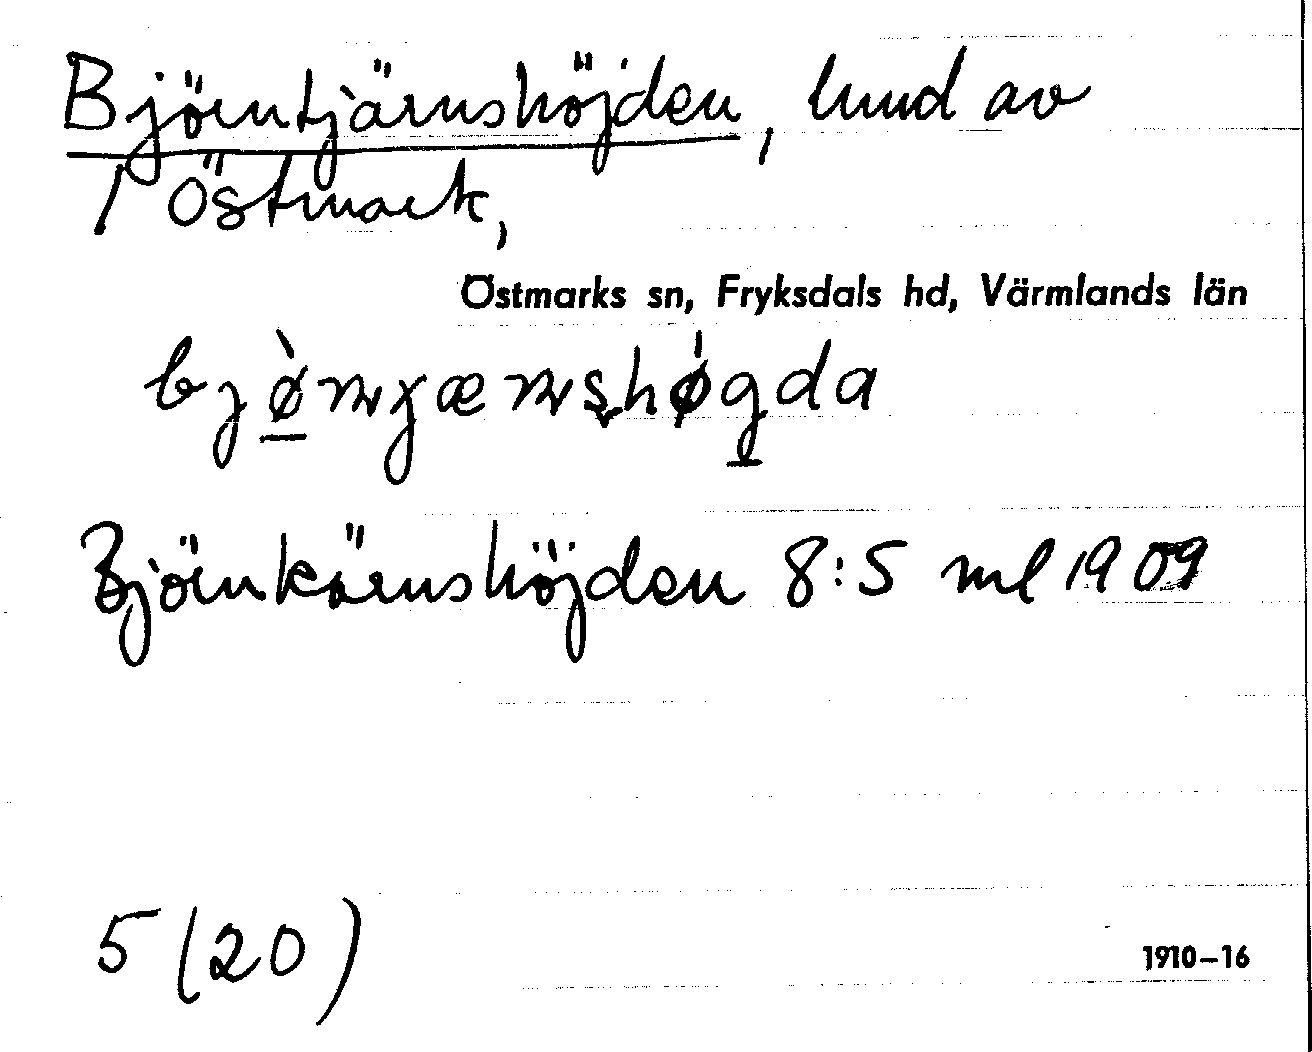 Björntjärnshöjden, hmd av
1 Östmark,
Östmarks sn, Fryksdals hd, Värmlands län
Björnkärnshöjden 8:5 ml 1909
5 (20)
1910–16